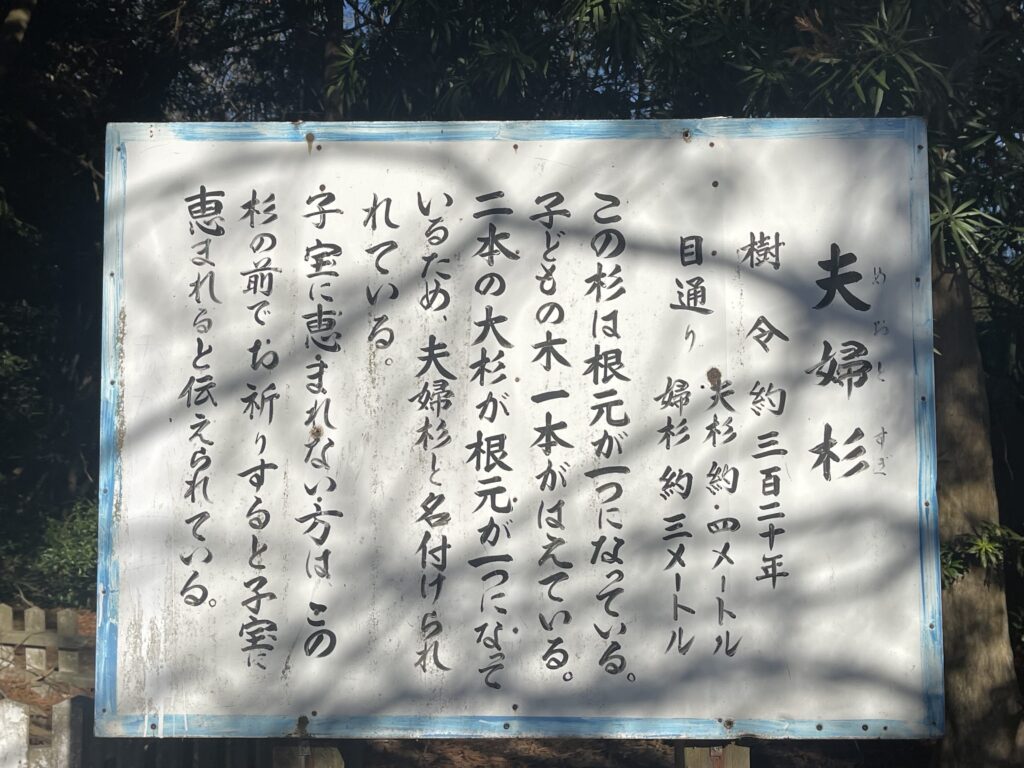 夫婦杉
めおとすぎ
樹令 約三百二十年
目通り 夫杉 約四メートル
婦杉 約三メートル
この杉は根元が一つになっている。
子どもの木一本がはえている。
二本の大杉が根元が一つになって
いるため、夫婦杉と名付けられ
れている。
子宝に恵まれない方はこの
杉の前でお祈りすると子宝に
恵まれると伝えられている。